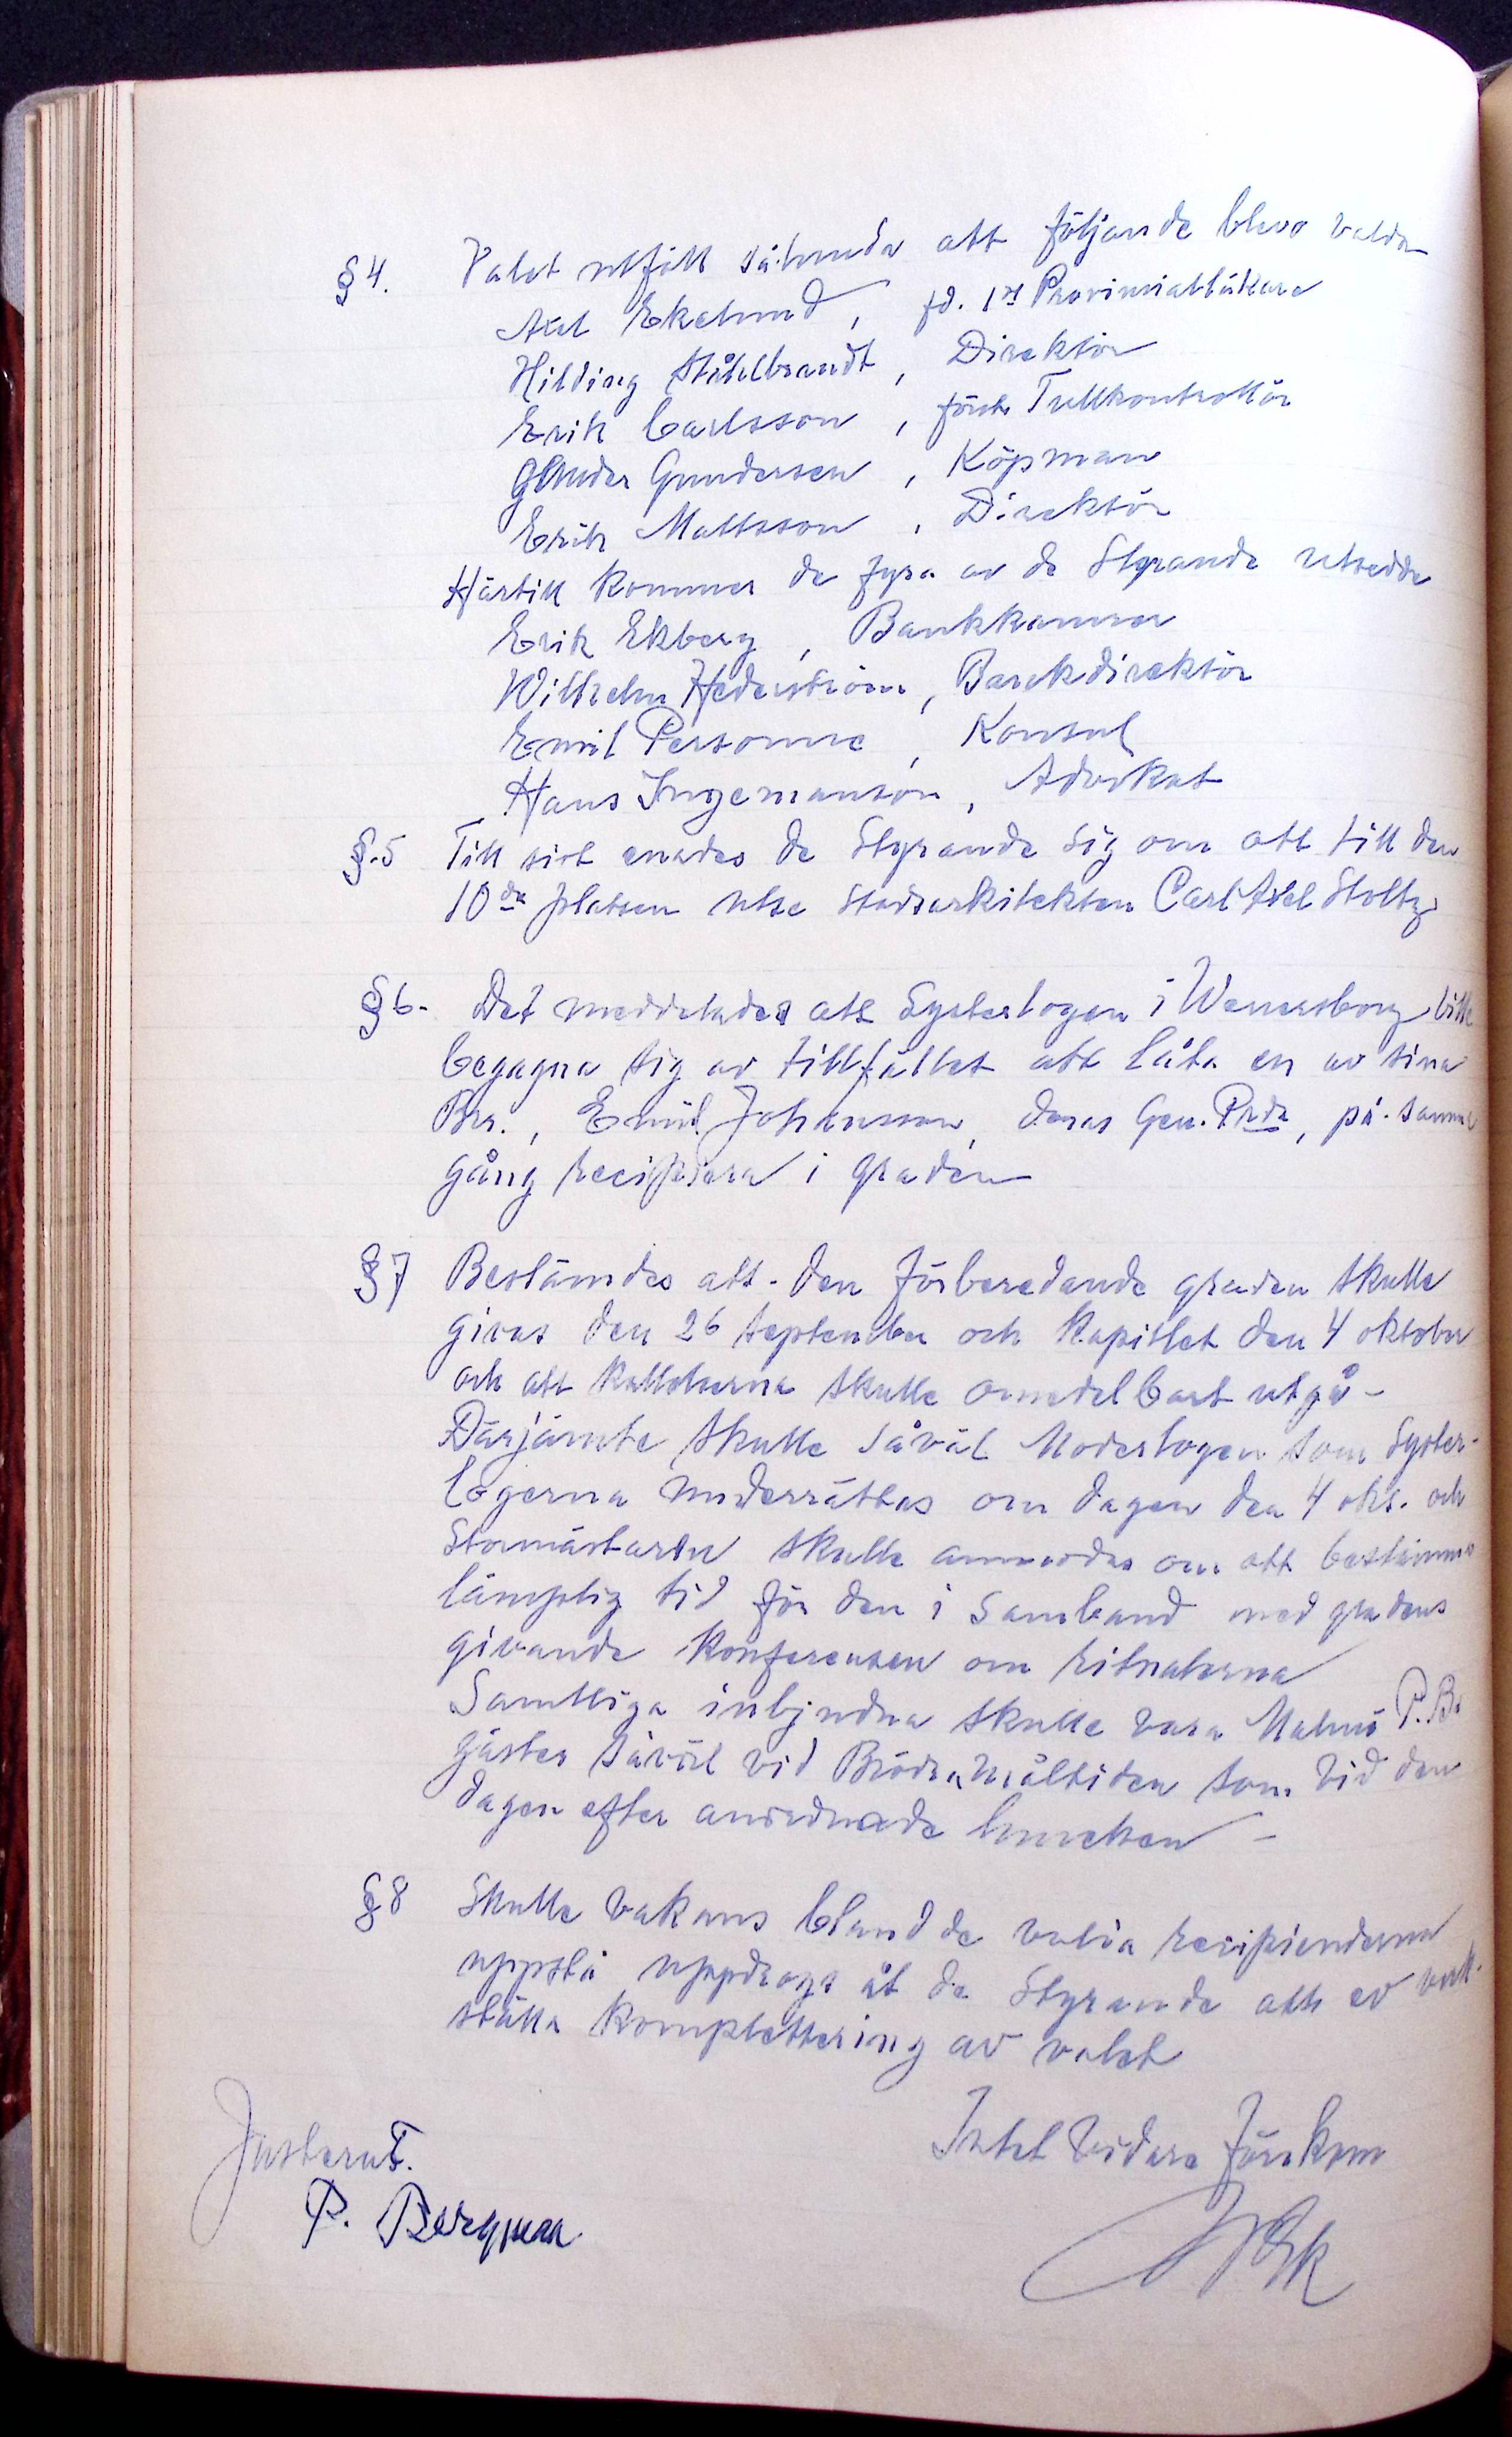 § 4. Valet utföll sålunda att följande blevo valda
Axel Ekelund, fd. 1st Provinsialläkare
Hilding Ståhlbrandt, Direktör
Erik Carlsson, förste Tullkontrollör
Gunder Gundersen, Köpman
Erik Mattsson, Direktör
Härtill kommer de fyra av de Styrande utsedda
Erik Ekberg, Bankkamrer
Wilhelm Hederström, Bankdirektör
Emil Personne, Konsul
Hans Ingemanson, Advokat
§.5 Till sist enades de Styrande sig om att till den
10da platsen utse Stadsarkitekten Carl Axel Stoltz
§6- Det meddelades att Systerlogen i Wenersborg ville
begagna sig av tillfället att låta en av sina
Brr., Emil Johansson, deras Gen. Prdr, på samma
gång recipiera i graden
§7 Bestämdes att den förberedande graden skulle
givas den 26 september och Kapitlet den 4 oktober
och att kallelserna skulle omedelbart utgå-
Därjämte skulle såväl Moderlogen som Syster-
logerna underrättas om dagen den 4 okt. och
Stormästaren skulle anmodas om att bestämma
lämplig tid för den i samband med gradens
givande konferensen om ritualerna
Samtliga inbjudna skulle vara Malmö P.B.
gäster såväl vid Brödramåltiden som vid den
dagen efter anordnade lunchen -
§8 Skulle vakans bland de valda recipienderna
uppstå uppdrogs åt de Styrande att ev verk-
ställa komplettering av valet
Intet vidare förekom
Justerat.
P. Bergman